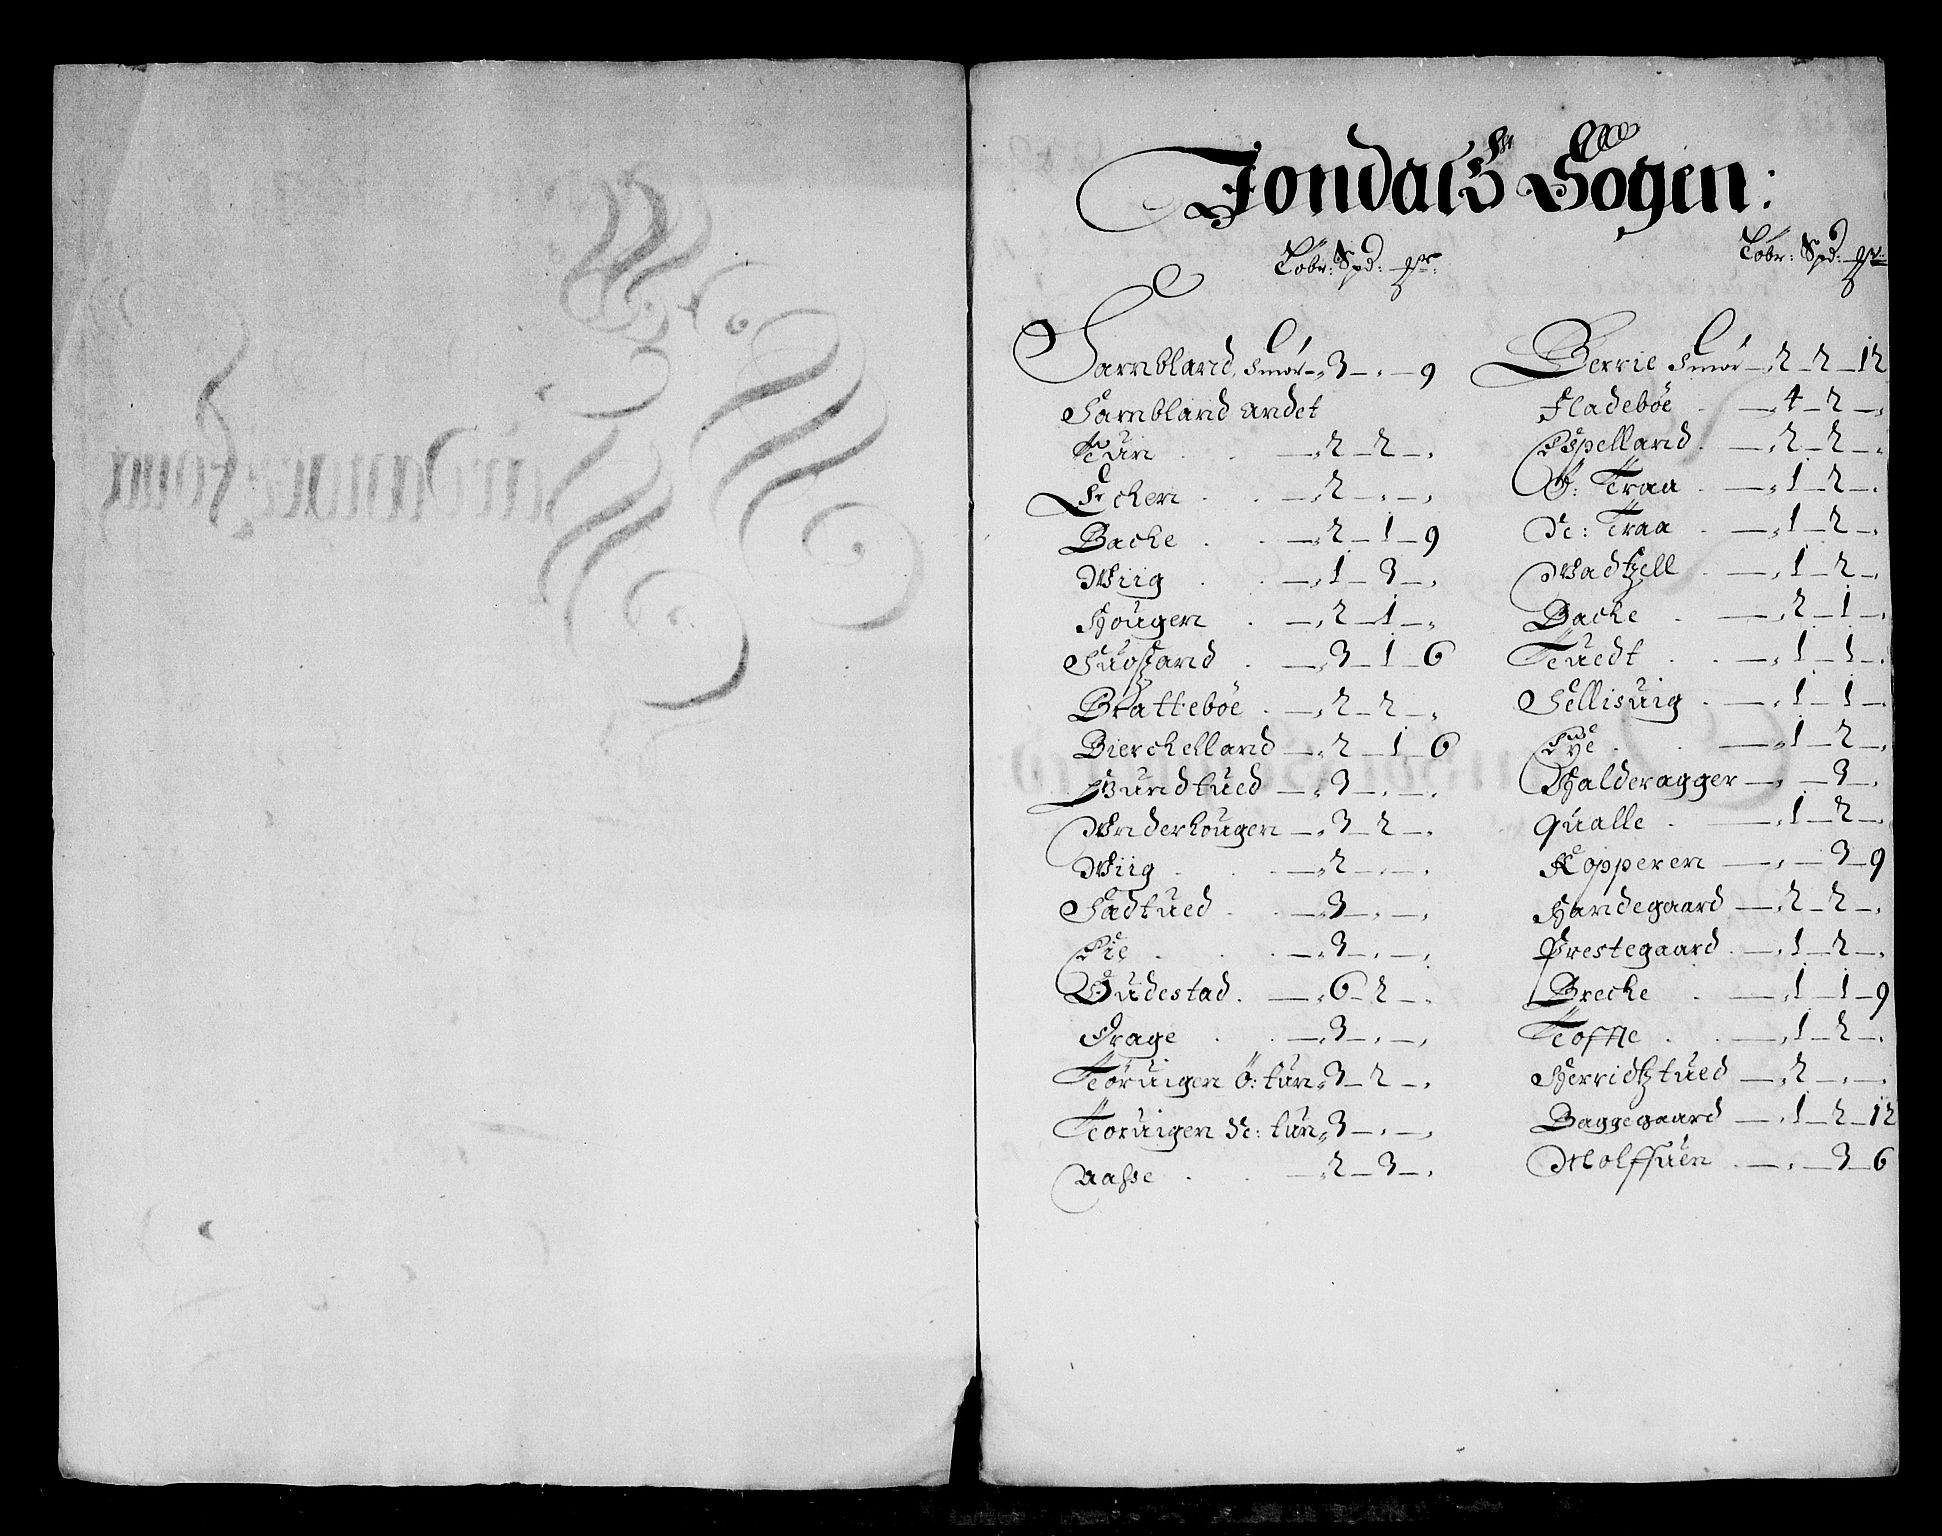 Jondals Sogen:
Løbr: Spd: gr:
Sambland, Smør — 3 — , — 9
Sambland andet
Tun — 2 — 2 — ,
Ecken — 2 — , — ,
Backe — 2 — 1 — 9
Wiig — 1 — 3 — ,
Hougen — 2 — 1 — ,
— 3 — 1 — 6
Brattebøe — 2 — 2 — ,
Bierckelland — 2 — 1 — 6
— 3 — , — ,
Underhougen — 3 — 2 — ,
Wiig — 2 — , — ,
Sadtued — 3 — , — ,
— 3 — , — ,
Gudestad — 6 — 2 — ,
Drage — 3 — , — ,
Toruigen Ø: tun — 3 — 2 — ,
Toruigen Ne: tun — 3 — , — ,
Aasse — 2 — 3 — ,
Løbr: Spd: gr:
Berrie Smør — 2 — 2 — 12
Fladebøe — 4 — 2 — ,
Espelland — 2 — 2 — ,
Ø: Traa — 1 — 2 — ,
Ne: Traa — 1 — 2 — ,
— 1 — 2 — ,
Backe — 2 — 1 — ,
Tuedt — 1 — 1 — ,
Sellisuig — 1 — 1 — ,
Eye — 1 — 2 — ,
Halderagger — , — 3 — ,
Qualle — 1 — 2 — ,
Kopperen — , — 3 — 9
Handegaard — 2 — 2 — ,
Prestegaard — 1 — 2 — ,
Brecke — 1 — 1 — 9
Toffte — 1 — 2 — ,
Herridtztued — 2 — , — ,
Baggegaard — 1 — 2 — 12
Molffuen — , — 3 — 6